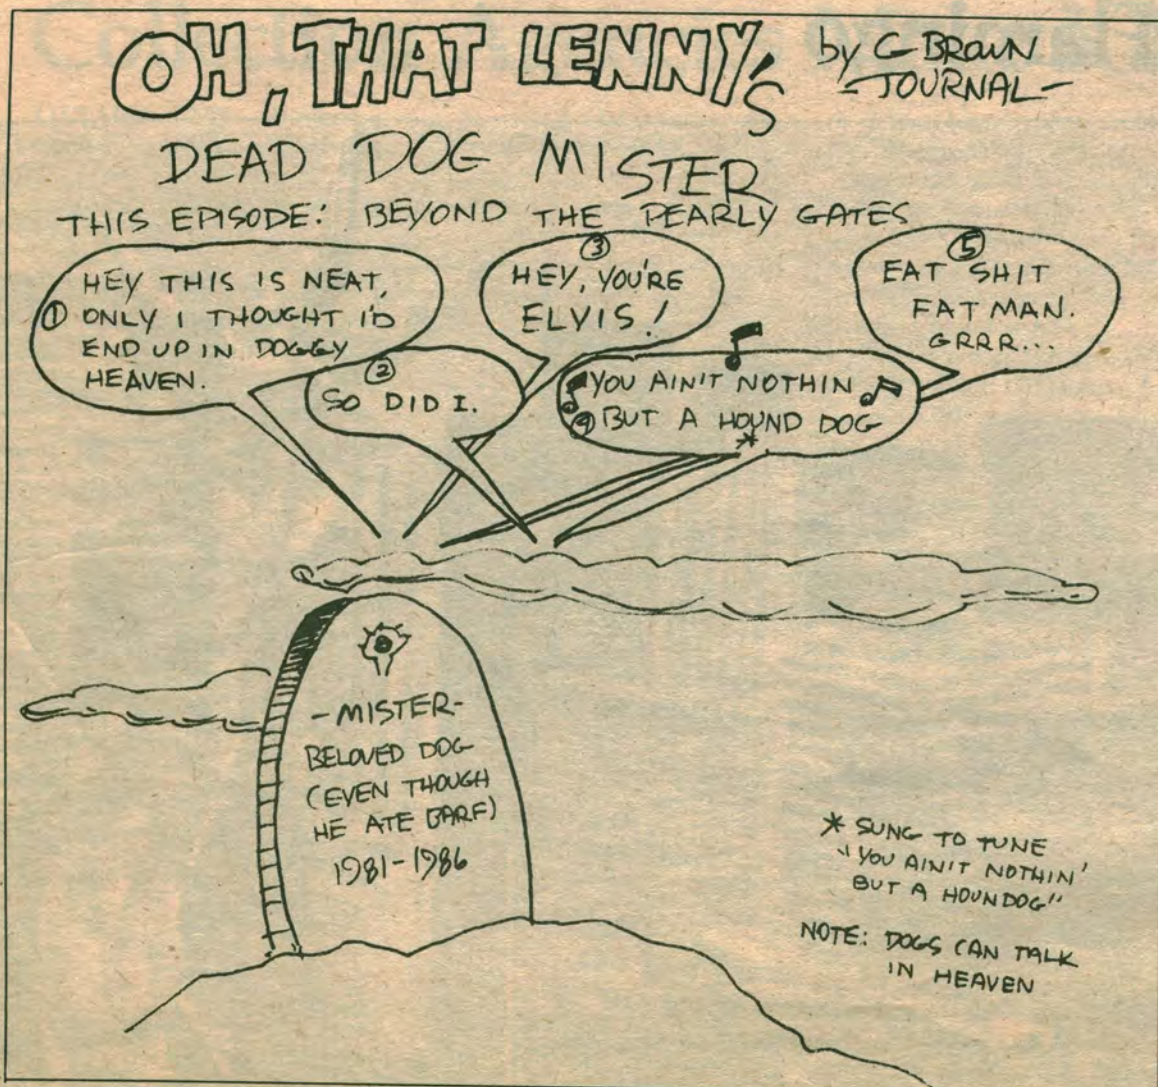 OH, THAT LENNY'S
by C BROWN
-JOURNAL-
DEAD DOG MISTER
THIS EPISODE: BEYOND THE PEARLY GATES
①
HEY THIS IS NEAT,
ONLY I THOUGHT I'D
END UP IN DOGGY
HEAVEN.
②
SO DID I.
③
HEY, YOU'RE
ELVIS!
④
YOU AIN'T NOTHIN
BUT A HOUND DOG
*
⑤
EAT SHIT
FAT MAN.
GRRR...
-MISTER-
BELOVED DOG
(EVEN THOUGH
HE ATE BARF)
1981-1986
* SUNG TO TUNE
"YOU AIN'T NOTHIN'
BUT A HOUNDOG"
NOTE: DOGS CAN TALK
IN HEAVEN